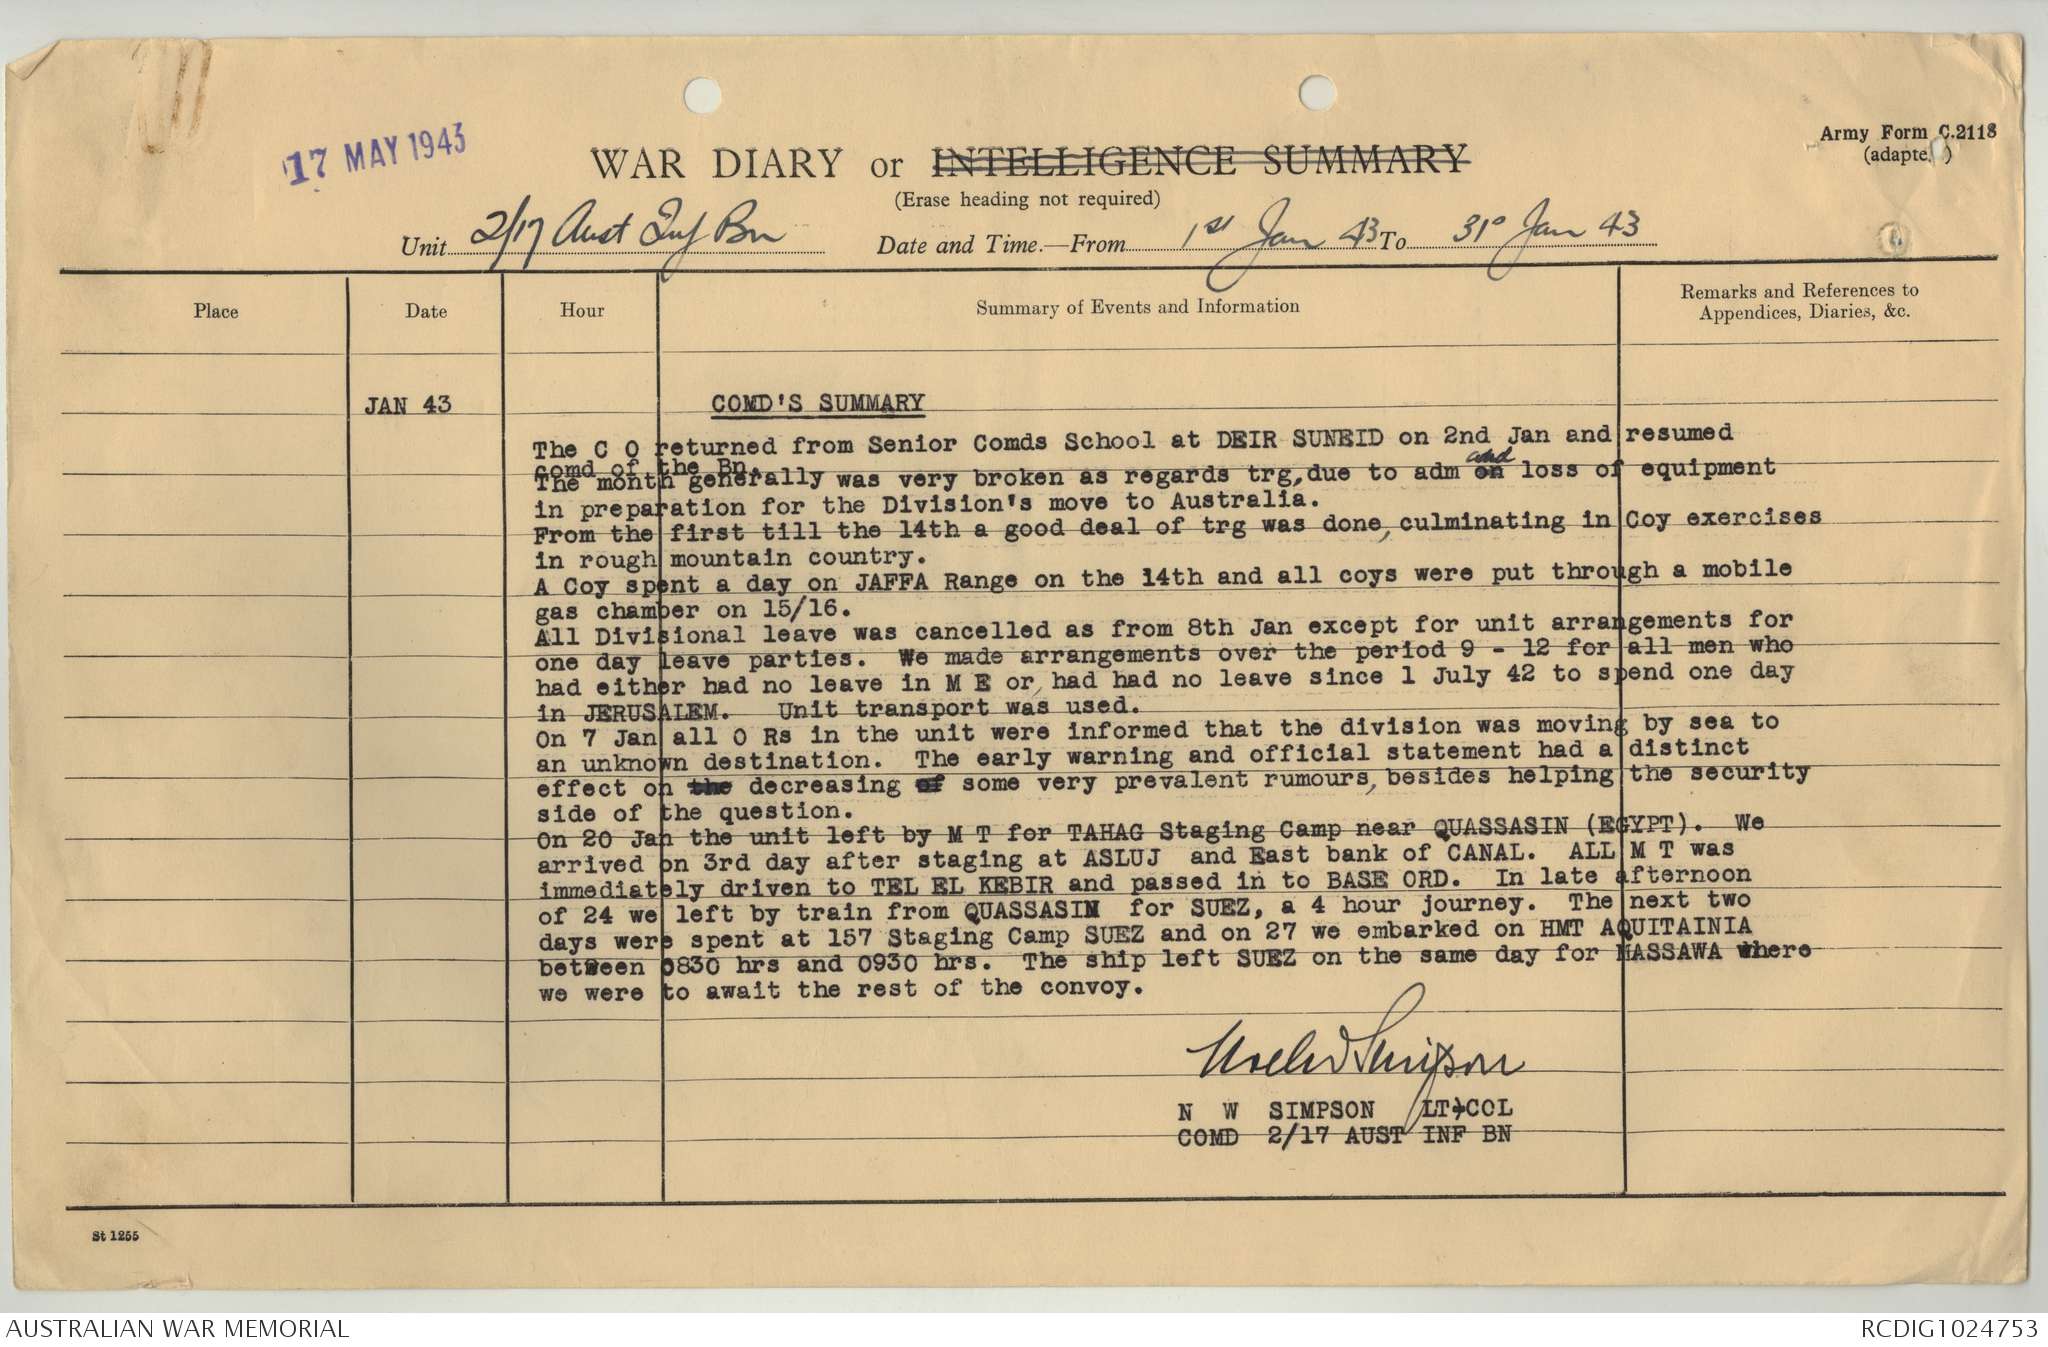 17 MAY 1943
Army Form C.2118
(adapte )
WAR DIARY or INTELLIGENCE SUMMARY
(Erase heading not required)
Unit 2/17 Aust Inf Bn Date and Time.—From 1st Jan 43 To 31o Jan 43
Place Date Hour Summary of Events and Information Remarks and References to
Appendices, Diaries, &c.
JAN 43 COMD'S SUMMARY
The C O returned from Senior Comds School at DEIR SUNEID on 2nd Jan and resumed
comd of the Bn.
The month generally was very broken as regards trg, due to adm on and loss of equipment
in preparation for the Division's move to Australia.
From the first till the 14th a good deal of trg was done, culminating in Coy exercises
in rough mountain country.
A Coy spent a day on JAFFA Range on the 14th and all coys were put through a mobile
gas chamber on 15/16.
All Divisional leave was cancelled as from 8th Jan except for unit arrangements for
one day leave parties. We made arrangements over the period 9 - 12 for all men who
had either had no leave in M E or, had had no leave since 1 July 42 to spend one day
in JERUSALEM. Unit transport was used.
On 7 Jan all O Rs in the unit were informed that the division was moving by sea to
an unknown destination. The early warning and official statement had a distinct
effect on the decreasing of some very prevalent rumours, besides helping the security
side of the question.
On 20 Jan the unit left by M T for TAHAG Staging Camp near QUASSASIN (EGYPT). We
arrived on 3rd day after staging at ASLUJ and East bank of CANAL. ALL M T was
immediately driven to TEL EL KEBIR and passed in to BASE ORD. In late afternoon
of 24 we left by train from QUASSASIN for SUEZ, a 4 hour journey. The next two
days were spent at 157 Staging Camp SUEZ and on 27 we embarked on HMT AQUITAINIA
between 0830 hrs and 0930 hrs. The ship left SUEZ on the same day for MASSAWA where
we were to await the rest of the convoy.
Noel W Simpson
N W SIMPSON LT-COL
COMD 2/17 AUST INF BN
St 1255
AUSTRALIAN WAR MEMORIAL RCDIG1024753